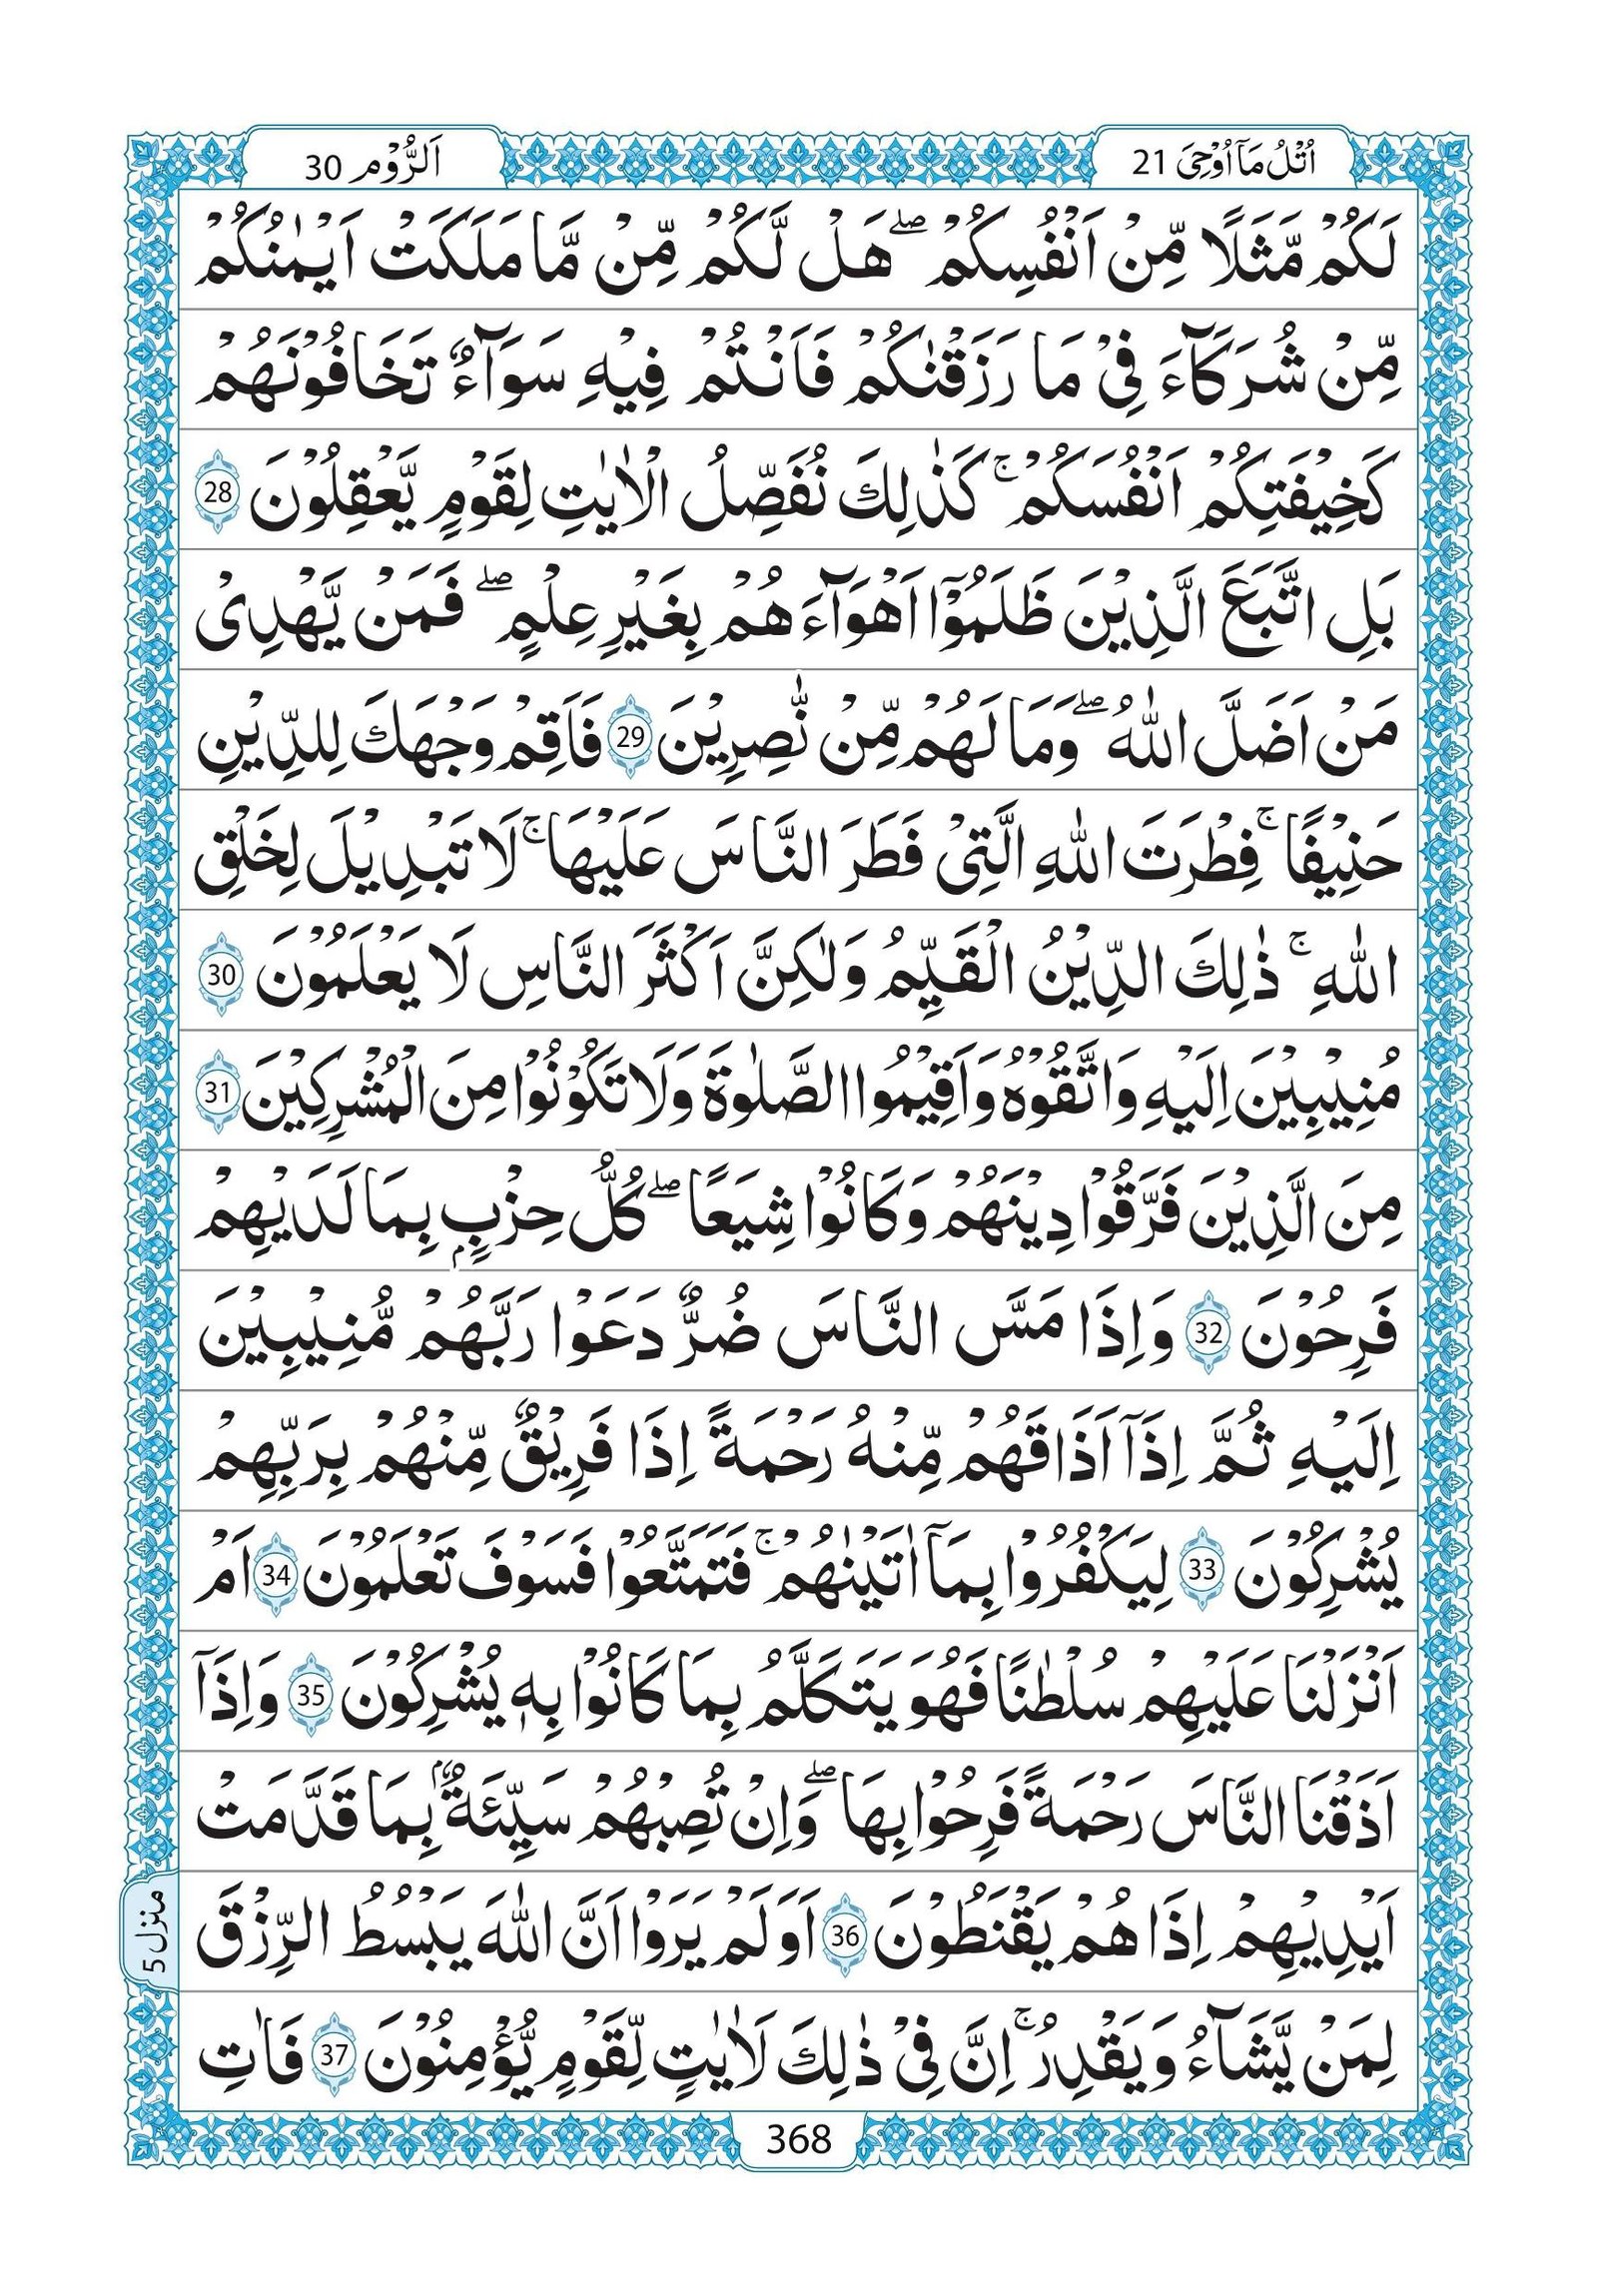 اُتْلُ مَاۤ اُوْحِیَ 21
اَلرُّوْم 30
لَكُمْ مَّثَلًا مِّنْ اَنْفُسِكُمْ ۖ هَلْ لَّكُمْ مِّنْ مَّا مَلَكَتْ اَیْمٰنُكُمْ
مِّنْ شُرَكَآءَ فِیْ مَا رَزَقْنٰكُمْ فَاَنْتُمْ فِیْهِ سَوَآءٌ تَخَافُوْنَهُمْ
كَخِیْفَتِكُمْ اَنْفُسَكُمْ ۚ كَذٰلِكَ نُفَصِّلُ الْاٰیٰتِ لِقَوْمٍ یَّعْقِلُوْنَ 28
بَلِ اتَّبَعَ الَّذِیْنَ ظَلَمُوْۤا اَهْوَآءَهُمْ بِغَیْرِ عِلْمٍ ۖ فَمَنْ یَّهْدِیْ
مَنْ اَضَلَّ اللّٰهُ ۖ وَمَا لَهُمْ مِّنْ نّٰصِرِیْنَ 29 فَاَقِمْ وَجْهَكَ لِلدِّیْنِ
حَنِیْفًا ۚ فِطْرَتَ اللّٰهِ الَّتِیْ فَطَرَ النَّاسَ عَلَیْهَا ۚ لَا تَبْدِیْلَ لِخَلْقِ
اللّٰهِ ۚ ذٰلِكَ الدِّیْنُ الْقَیِّمُ وَلٰكِنَّ اَكْثَرَ النَّاسِ لَا یَعْلَمُوْنَ 30
مُنِیْبِیْنَ اِلَیْهِ وَاتَّقُوْهُ وَاَقِیْمُوا الصَّلٰوةَ وَلَا تَكُوْنُوْا مِنَ الْمُشْرِكِیْنَ 31
مِنَ الَّذِیْنَ فَرَّقُوْا دِیْنَهُمْ وَكَانُوْا شِیَعًا ۖ كُلُّ حِزْبٍۭ بِمَا لَدَیْهِمْ
فَرِحُوْنَ 32 وَاِذَا مَسَّ النَّاسَ ضُرٌّ دَعَوْا رَبَّهُمْ مُّنِیْبِیْنَ
اِلَیْهِ ثُمَّ اِذَاۤ اَذَاقَهُمْ مِّنْهُ رَحْمَةً اِذَا فَرِیْقٌ مِّنْهُمْ بِرَبِّهِمْ
یُشْرِكُوْنَ 33 لِیَكْفُرُوْا بِمَاۤ اٰتَیْنٰهُمْ ۚ فَتَمَتَّعُوْا فَسَوْفَ تَعْلَمُوْنَ 34 اَمْ
اَنْزَلْنَا عَلَیْهِمْ سُلْطٰنًا فَهُوَ یَتَكَلَّمُ بِمَا كَانُوْا بِهٖ یُشْرِكُوْنَ 35 وَاِذَاۤ
اَذَقْنَا النَّاسَ رَحْمَةً فَرِحُوْا بِهَا ۖ وَاِنْ تُصِبْهُمْ سَیِّئَةٌۢ بِمَا قَدَّمَتْ
اَیْدِیْهِمْ اِذَا هُمْ یَقْنَطُوْنَ 36 اَوَلَمْ یَرَوْا اَنَّ اللّٰهَ یَبْسُطُ الرِّزْقَ
لِمَنْ یَّشَآءُ وَیَقْدِرُ ۚ اِنَّ فِیْ ذٰلِكَ لَاٰیٰتٍ لِّقَوْمٍ یُّؤْمِنُوْنَ 37 فَاٰتِ
منزل 5
368